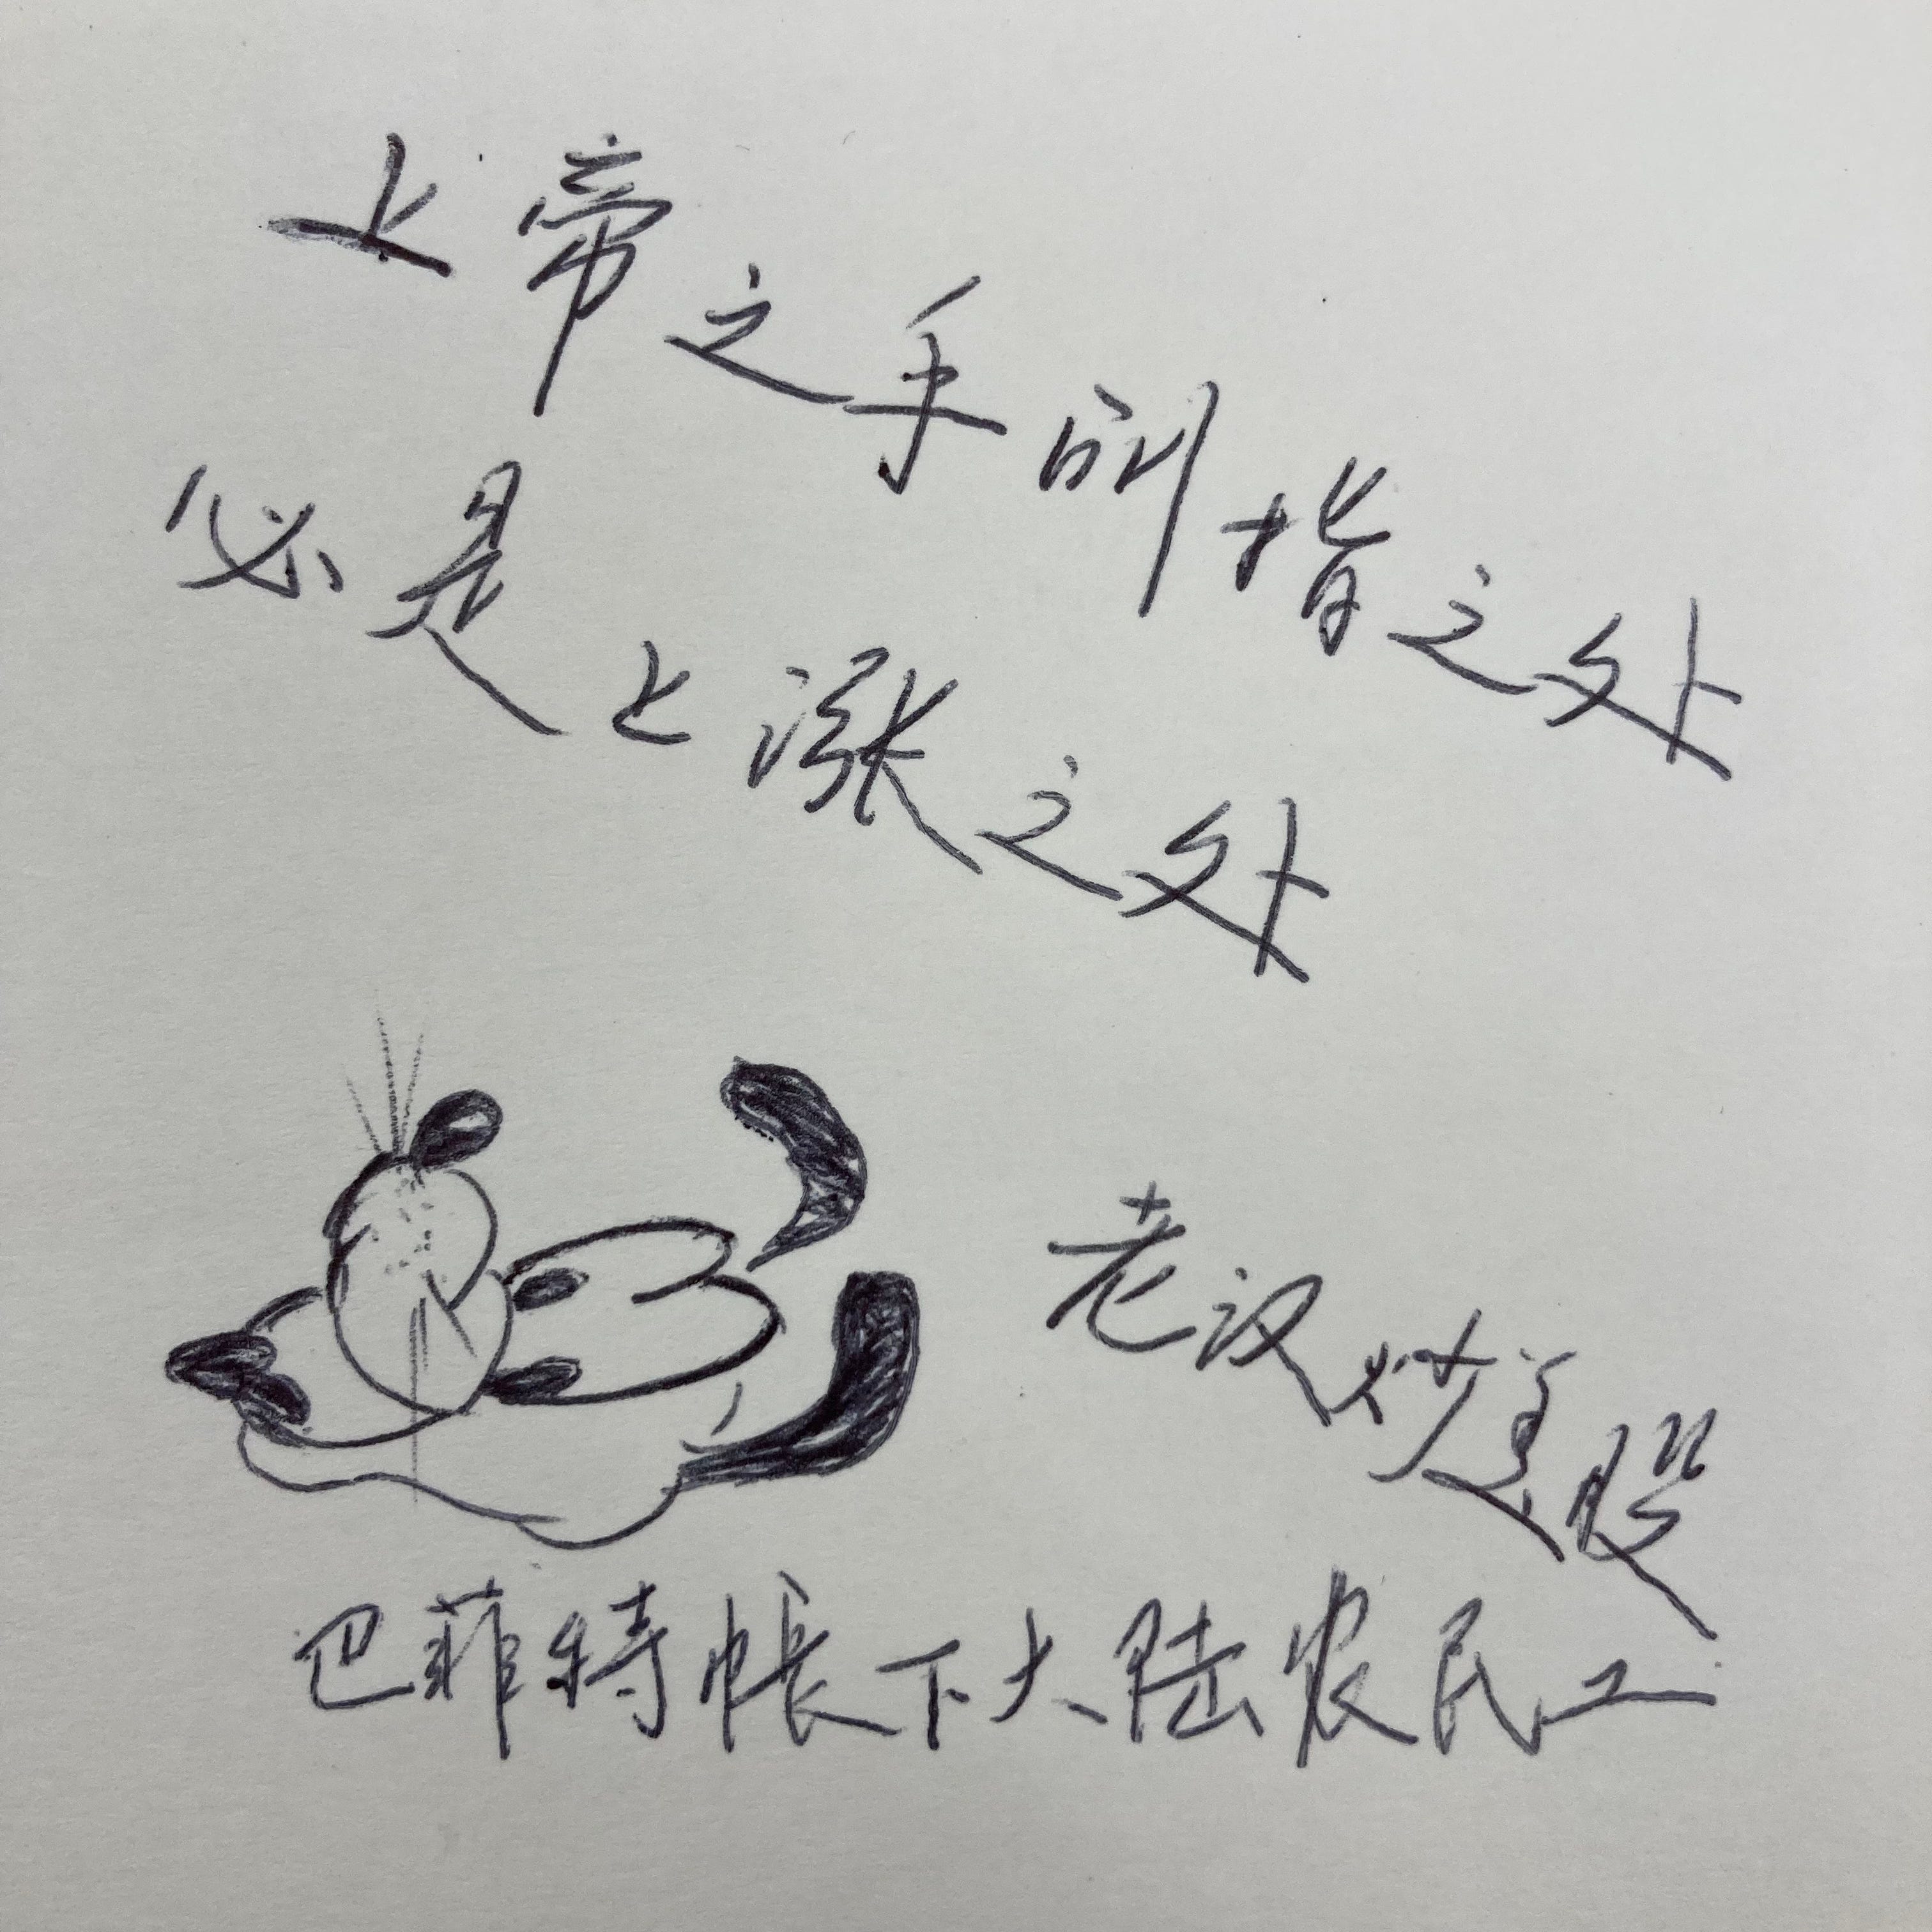 上帝之手所指之处
必是上涨之处
老汉炒美股
巴菲特帐下大陆农民工